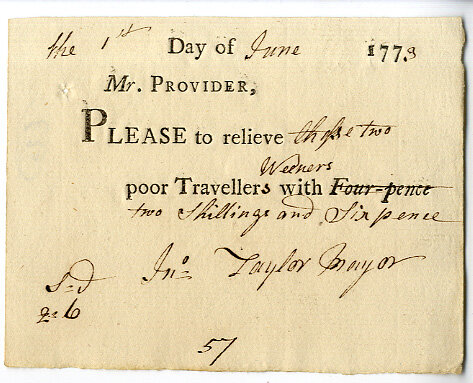 the 1st Day of June 1773
Mr. PROVIDER,
PLEASE to relieve these two
Weevers
poor Travellers with Four-pence
two Shillings and Sixpence
Jno Taylor Mayor
S=d
2=6
57